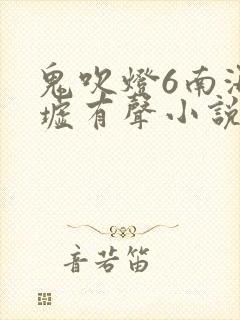 鬼吹燈6南海
墟有聲小説
音若笛